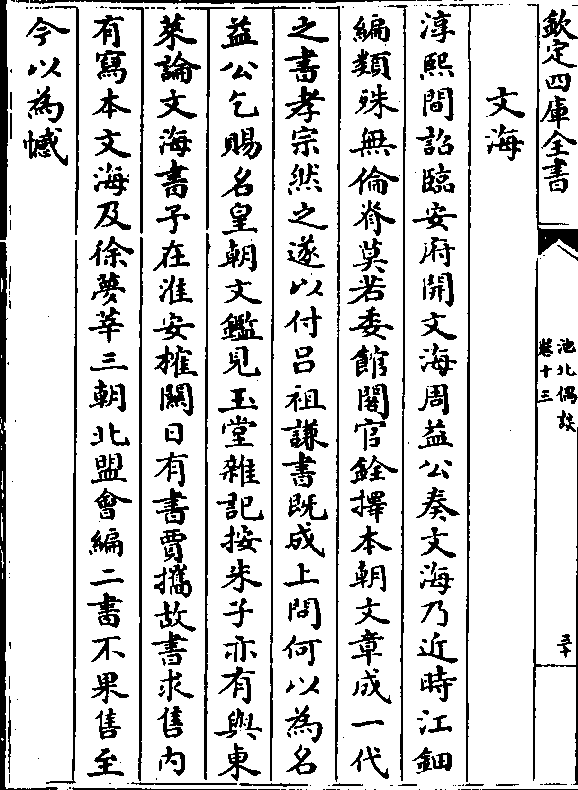 欽定四庫全書
池北偶談
卷十三
三十
文海
淳熙間詔臨安府開文海周益公奏文海乃近時江鈿
編類殊無倫脊莫若委館閣官銓擇本朝文章成一代
之書孝宗然之遂以付吕祖謙書既成上問何以為名
益公乞賜名皇朝文鑑見玉堂雜記按朱子亦有與東
萊論文海書予在淮安榷關日有書賈攜故書求售内
有寫本文海及徐夢莘三朝北盟會編二書不果售至
今以為憾